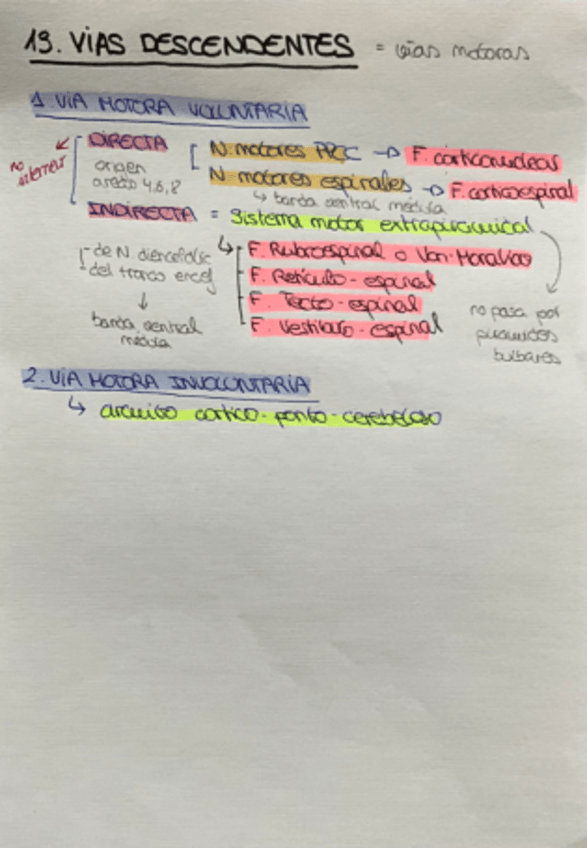 13. VIAS DESCENDENTES = vías motoras
1. VIA MOTORA VOLUNTARIA
DIRECTA
no
origen
areas 4,6,8
N. motores PPCC → F. corticonuclear
N. motores espinales → F. corticoespiral
↳ banda central médula
INDIRECTA = Sistema motor extrapiramidal
de N. diencefálic
del tronco encef
↓
banda central
médula
↳ F. Rubroespinal o Von-Monakow
F. Retículo-espinal
F. Tecto-espinal
F. Vestíbulo-espinal
no pasa por
pirámides
bulbares
2. VIA MOTORA INVOLUNTARIA
↳ circuito cortico-ponto-cerebeloso